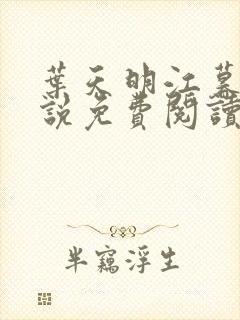 葉天明江慕
說免費閱讀
半竊浮生